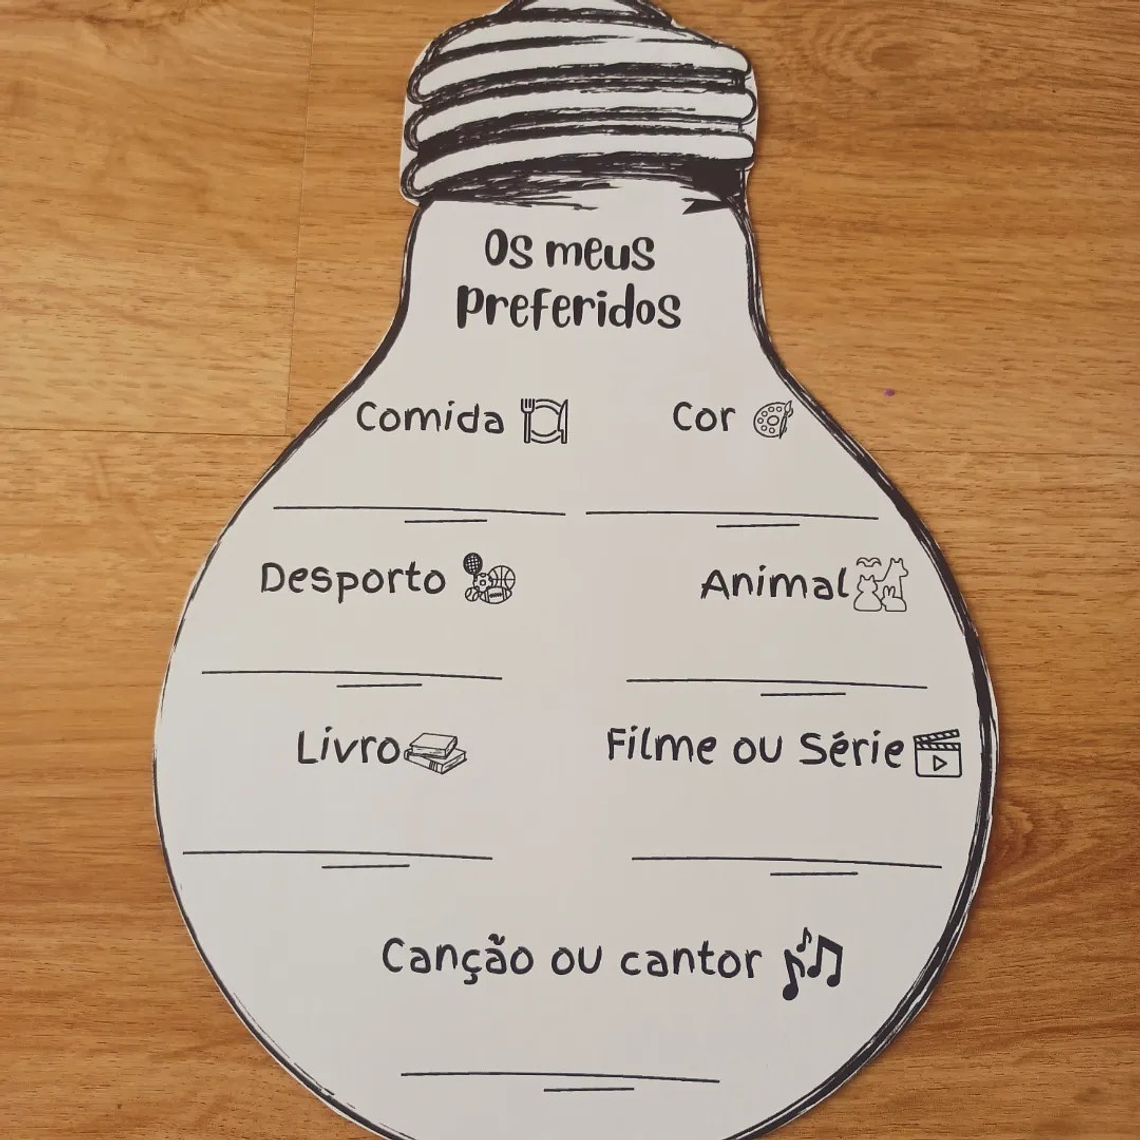 Os meus
Preferidos
Comida
Cor
Desporto
Animal
Livro
Filme ou Série
Canção ou cantor